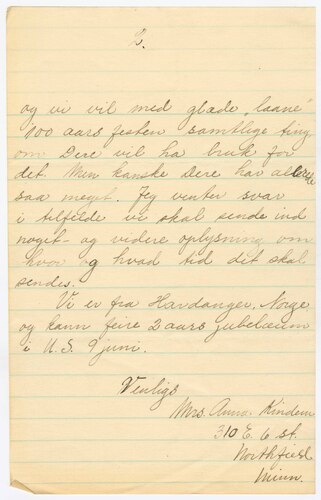 2.
og vi vil med glæde "laane"
100 aars festen samtlige ting
om Dere vil ha bruk for
det. Men kanske Dere har allerede
saa meget. Jeg venter svar
i tilfelde vi skal sende ind
noget - og videre oplysning om
hvor og hvad tid det skal
sendes.
Vi er fra Hardanger, Norge
og kann feire 2 aars jubelæum
i U.S. 9 juni.
Venligs
Mrs. Anna Kindem
310 E. 6 st.
Northfield
Minn.